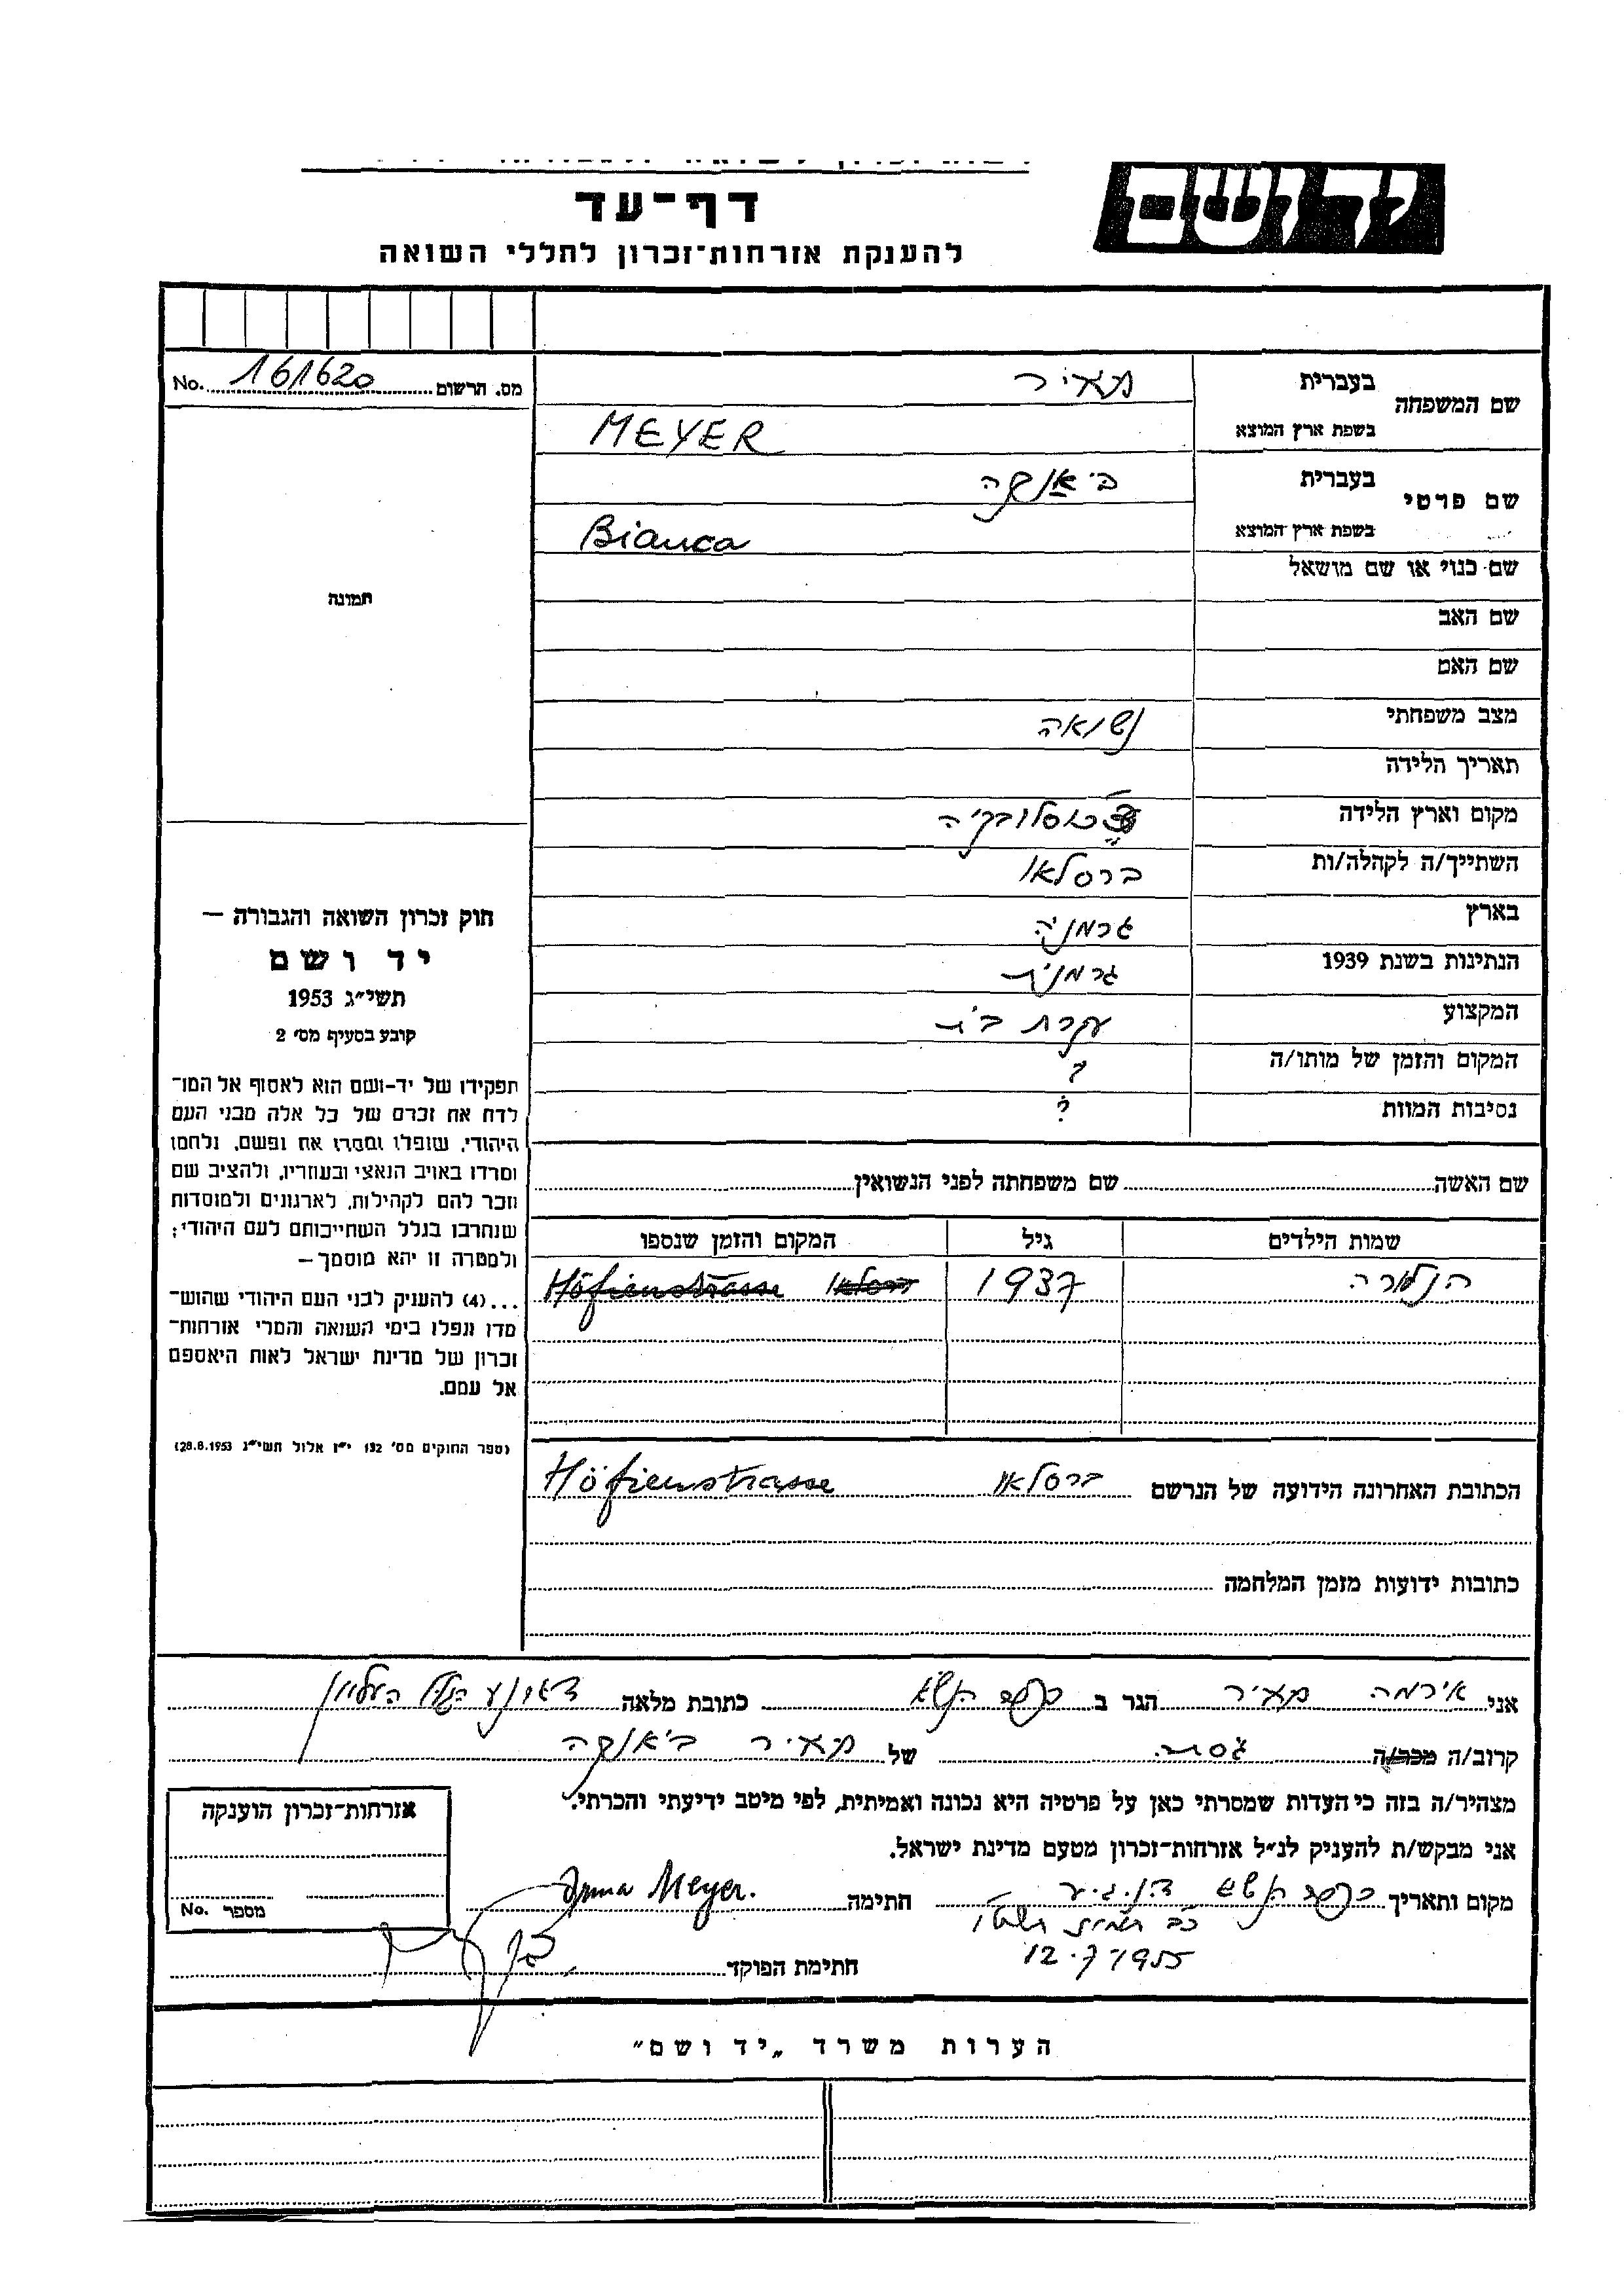 יד ושם
דף-עד
להענקת אזרחות-זכרון לחללי השואה
מס. הרשום 161620 No.
שם המשפחה
בעברית מאיר
בשפת ארץ המוצא MEYER
שם פרטי
בעברית ביאנקה
בשפת ארץ המוצא Bianca
שם כנוי או שם מושאל
שם האב
שם האם
מצב משפחתי נשואה
תאריך הלידה
מקום וארץ הלידה צ'כוסלובקיה
השתייך/ה לקהלה/ות ברסלאו
בארץ גרמניה
הנתינות בשנת 1939 גרמנית
המקצוע עקרת בית
המקום והזמן של מותו/ה ?
נסיבות המוות ?
שם האשה שם משפחתה לפני הנשואין
שמות הילדים גיל המקום והזמן שנספו
1937 ברסלאו Höfienstrasse
הכתובת האחרונה הידועה של הנרשם ברסלאו Höfienstrasse
כתובות ידועות מזמן המלחמה
תמונה
חוק זכרון השואה והגבורה —
יד ושם
תשי״ג 1953
קובע בסעיף מס׳ 2
תפקידו של יד-ושם הוא לאסוף אל המו-
לדת את זכרם של כל אלה מבני העם
היהודי, שנפלו ומסרו את נפשם, נלחמו
ומרדו באויב הנאצי ובעוזריו, ולהציב שם
וזכר להם לקהילות, לארגונים ולמוסדות
שנחרבו בגלל השתייכותם לעם היהודי;
ולמטרה זו יהא מוסמך—
...(4) להעניק לבני העם היהודי שהוש-
מדו ונפלו בימי השואה והמרי אזרחות-
זכרון של מדינת ישראל לאות היאספם
אל עמם.
(ספר החוקים מס׳ 132 י״ז אלול תשי״ג 28.8.1953)
אני אירמה מאיר הגר ב כתובת מלאה
קרוב/ה מכר/ה גסה של מאיר ביאנקה
מצהיר/ה בזה כי העדות שמסרתי כאן על פרטיה היא נכונה ואמיתית, לפי מיטב ידיעתי והכרתי.
אני מבקש/ת להעניק לנ״ל אזרחות-זכרון מטעם מדינת ישראל.
מקום ותאריך חתימה Irma Meyer.
כב תמוז תשט״ו
12.7.1955
חתימת הפוקד
אזרחות-זכרון הוענקה
מספר No.
הערות משרד „יד ושם״